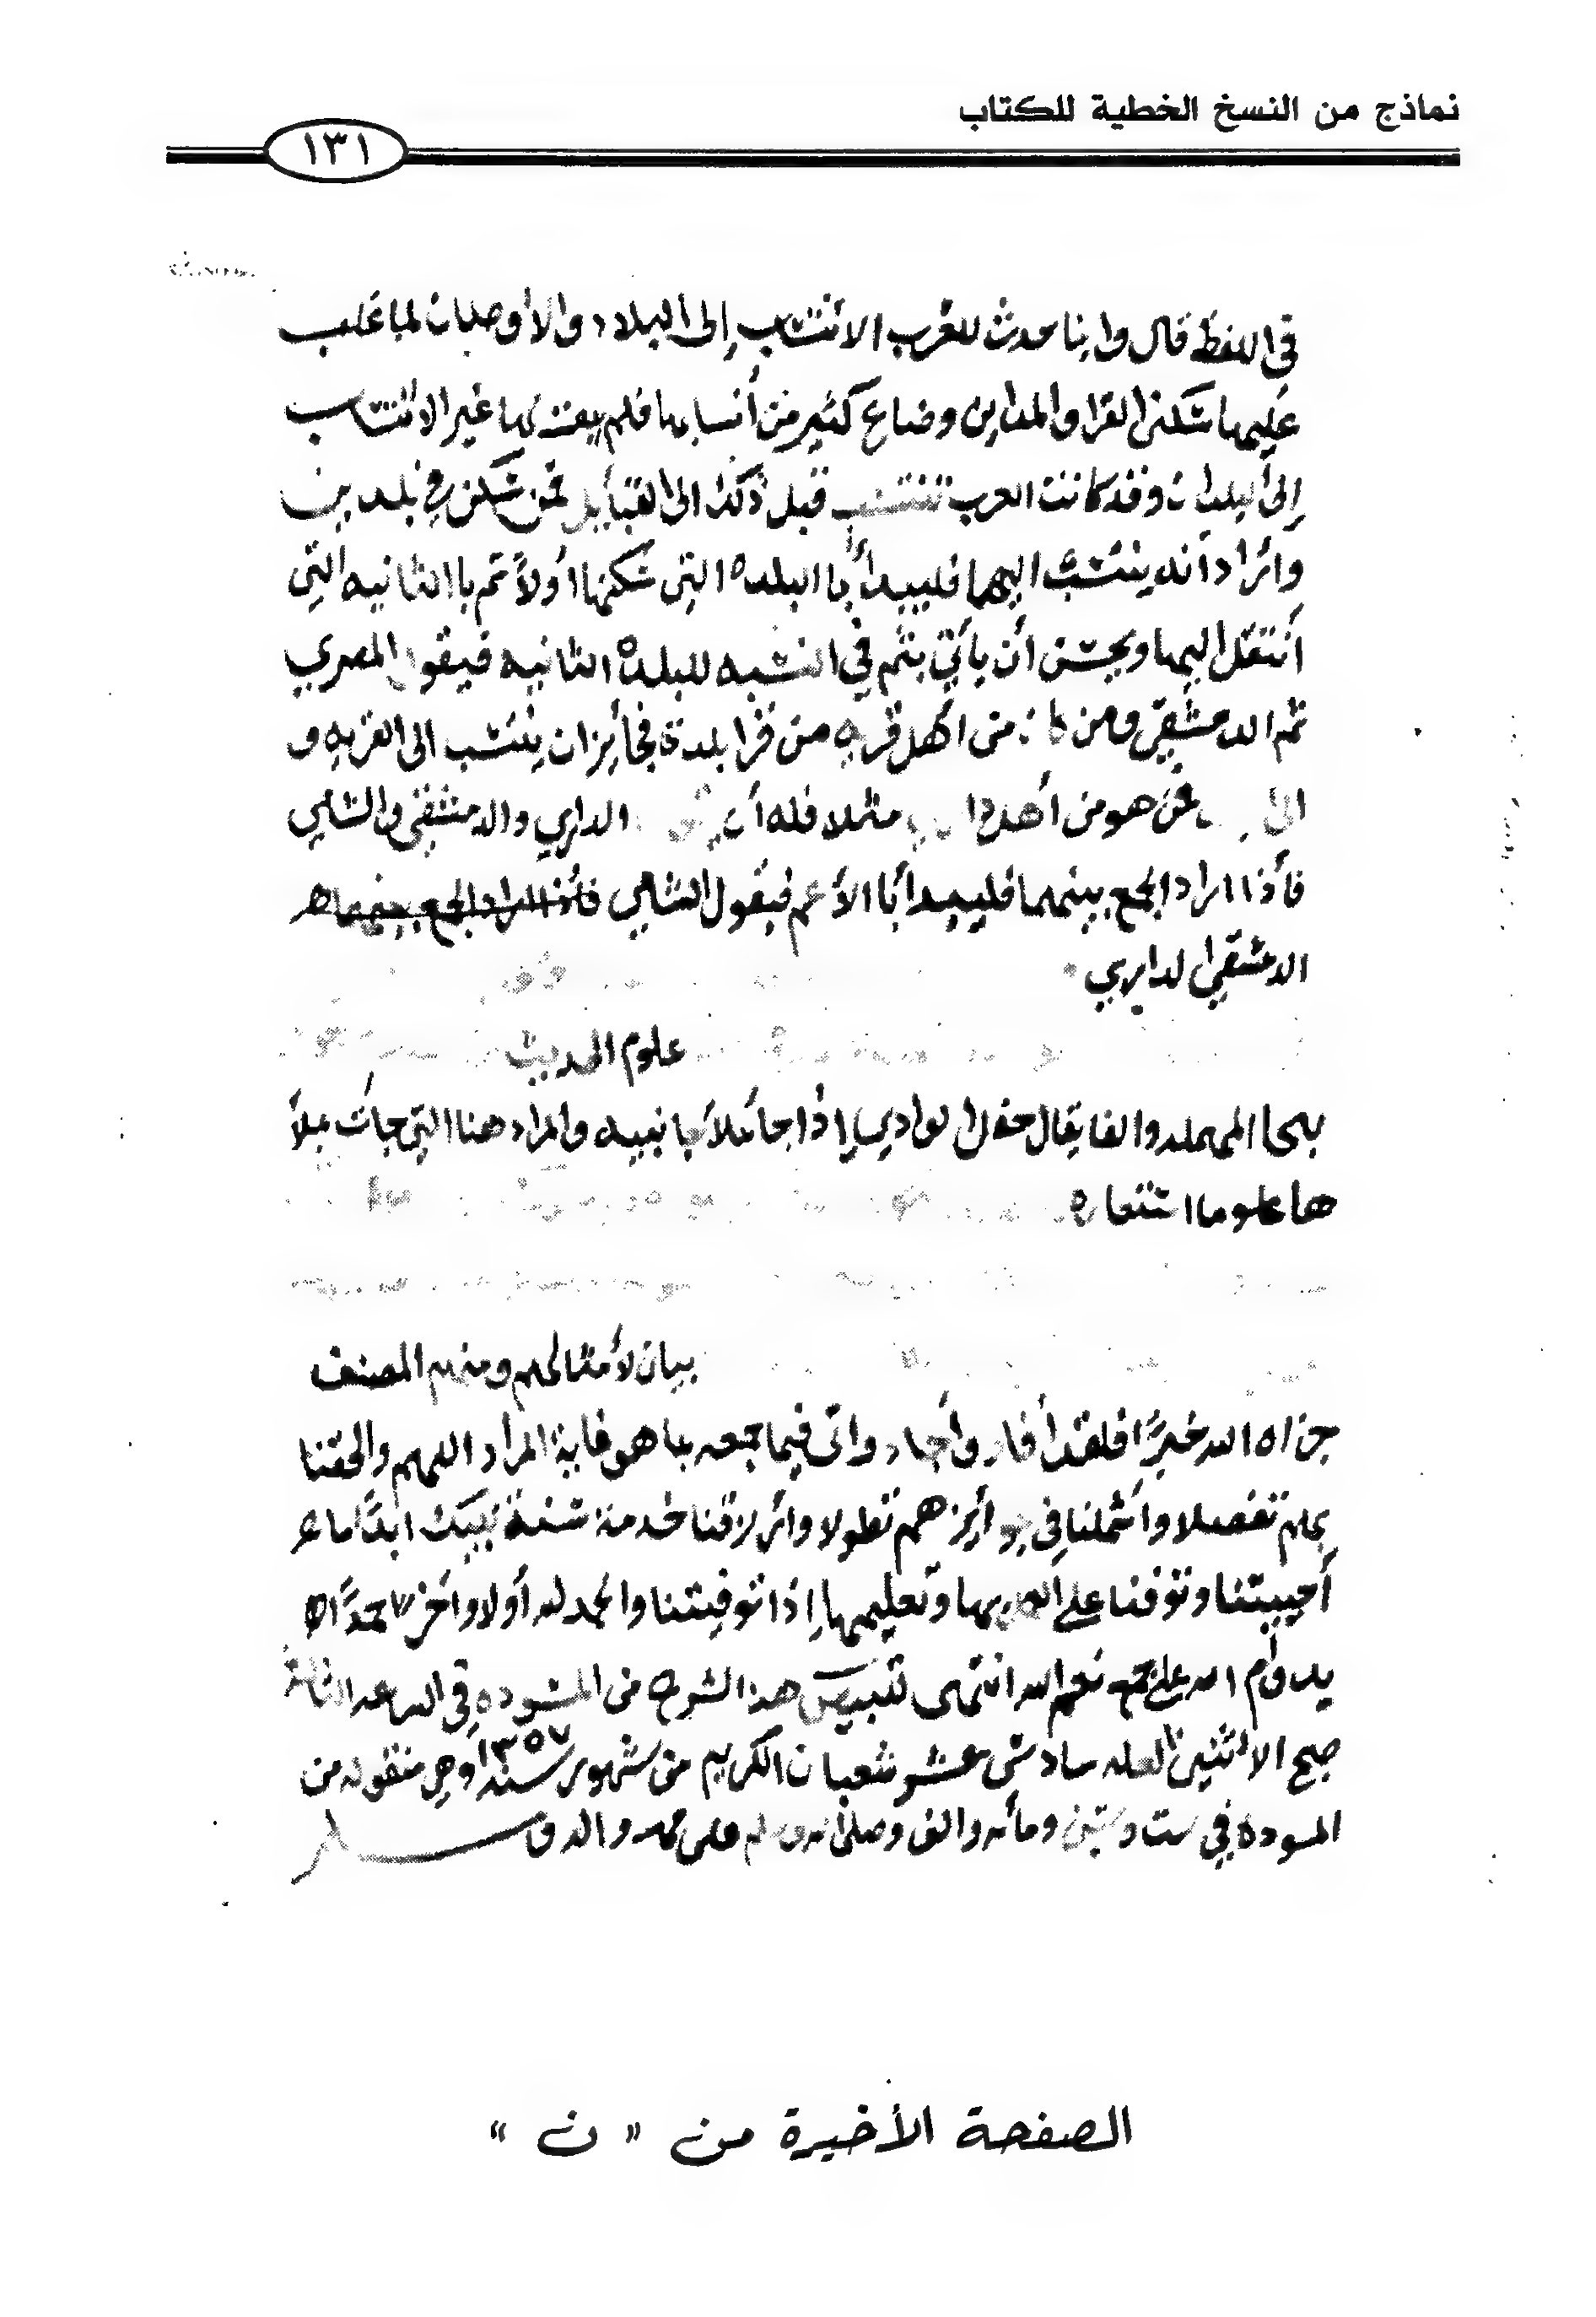 نماذج من النسخ الخطية للكتاب
١٣١
في اللفظ قال وانما حدث للعرب الانتساب إلى البلاد والأوطان لما غلب
عليها سكنى القرا والمداين وضاع كثير من أنسابها فلم يبق لها غير الانتساب
إلى البلدان وقد كانت العرب تنتسب قبل ذلك الى القبايل فمن سكن في بلدين
وأراد أنه ينتسب اليهما فليبدأ با البلده التي سكنها أولاً ثم با الثانيه التي
أنتقل اليها ويحسن أن يأتي بثم في النسبه للبلدة الثانيه فيقول المصري
ثم الدمشقي ومن كان من أهل قريه من قرا بلدة فجايزان ينتسب الى القريه و
الى فمن هو من أهل مثلا فله أن الداري والدمشقي والشامي
فأذا اراد الجمع بينهما فليبدأ با الأعم فيقول الشامي فأذا اراد الجمع بينهما
الدمشقي الداري
علوم الحديث
بالحا المهمله والفا يقال حفل الوادي إذا جا ملأ جانبيه والمراد هنا التي جأت ملأ
ها علوما استعاره
بيان لأمثالهم ومنهم المصنف
جزاه الله خيرًا فلقد أفاد وأجاد واتى فيما جمعه بما هو غاية المراد اللهم والحقنا
بهم تفضلا وأشملنا في جوايزهم تطولا وارزقنا خدمة سنة نبيك ابدًا ما
أحييتنا وتوفنا على العمل بها وتعليمها إذا توفيتنا والحمد لله أولا وأخرا حمدًا
يدوم الله على جميع نعم الله انتهى تبييض هذا الشرح من المسوده في الساعه الثالثة
صبح الاثنين لعله سادس عشر شعبان الكريم من شهور سنه ١٣٥٧ وهي منقوله من
المسوده في ست وستين ومأئه والف وصلى الله وسلم على محمد واله وسلم
الصفحة الأخيرة من « ن »